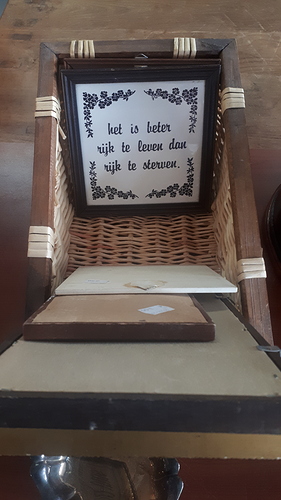 het is beter
rijk te leven dan
rijk te sterven.